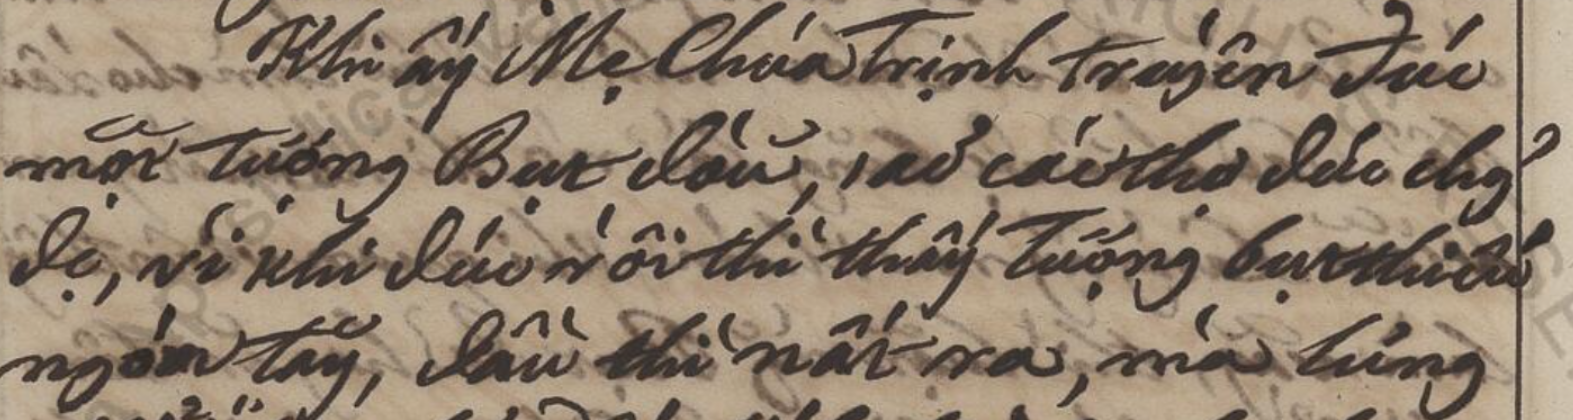 Khi ấy Mẹ Chúa Trịnh truyền đúc
một tượng Bụt đầu, các thợ đúc chẳng
dạ, vì khi đúc rồi thì thấy tượng bụt thiếu
ngón tay, đầu thì nát ra, mà